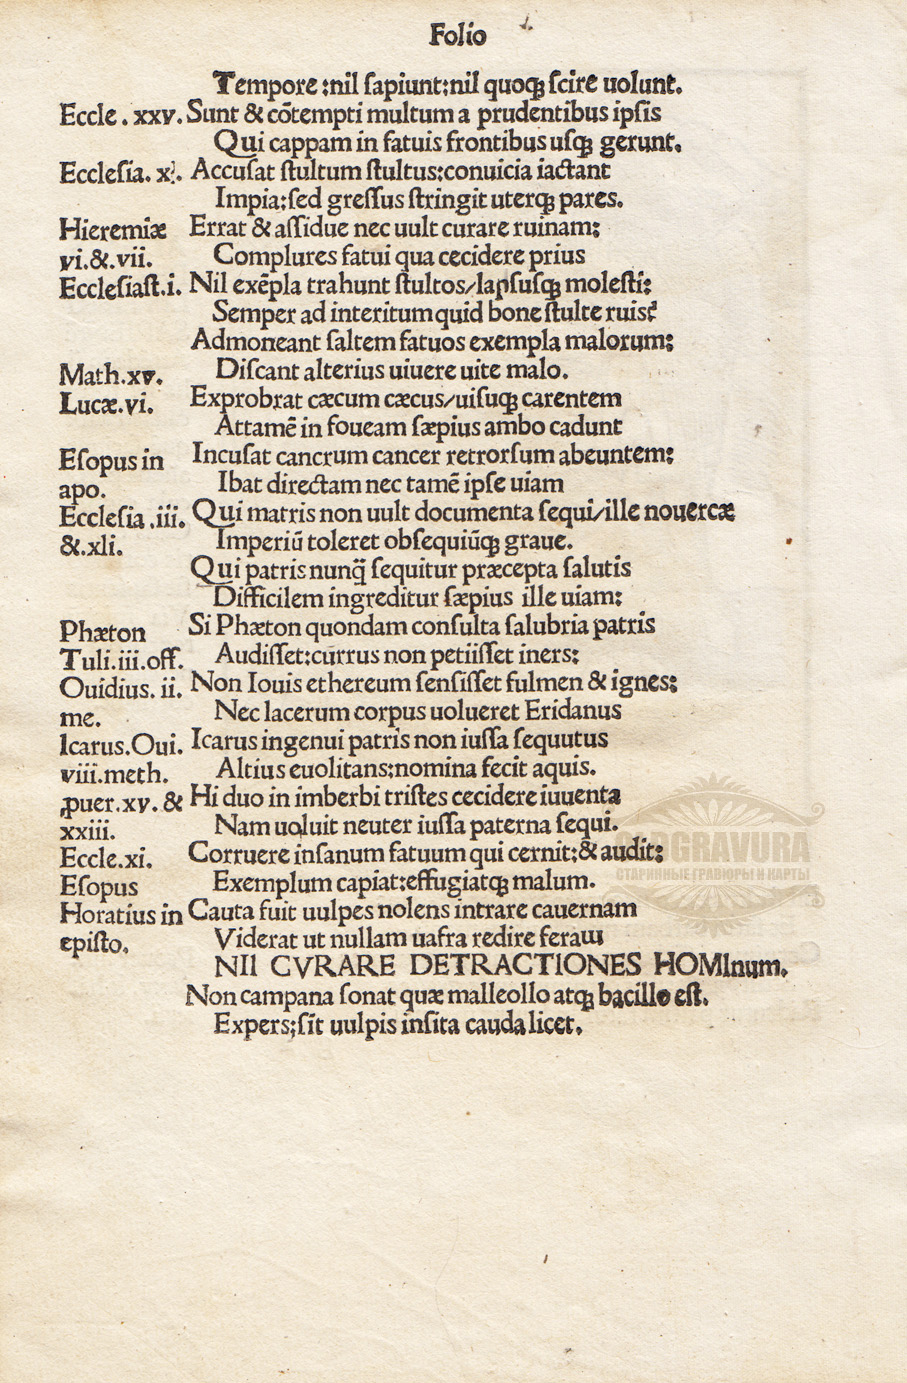 Folio
Tempore:nil ſapiunt:nil quoqꝫ ſcire uolunt.
Eccle. xxv. Sunt & cōtempti multum a prudentibus ipſis
Qui cappam in fatuis frontibus uſqꝫ gerunt.
Eccleſia. Accuſat ſtultum ſtultus:conuicia iactant
Impia:ſed greſſus ſtringit uterqꝫ pares.
Hieremiæ Errat & aſſidue nec uult curare ruinam:
vi.&.vii. Complures fatui qua cecidere prius
Eccleſiaſt.i. Nil exēpla trahunt ſtultos/lapſuſqꝫ moleſti:
Semper ad interitum quid bone ſtulte ruis?
Admoneant ſaltem fatuos exempla malorum:
Math.xv. Diſcant alterius uiuere uite malo.
Lucæ.vi. Exprobrat cæcum cæcus/uiſuqꝫ carentem
Attamē in foueam ſæpius ambo cadunt
Eſopus in Incuſat cancrum cancer retrorſum abeuntem:
apo. Ibat directam nec tamē ipſe uiam
Eccleſia.iii. Qui matris non uult documenta ſequi/ille nouercæ
&.xli. Imperiū toleret obſequiūqꝫ graue.
Qui patris nunq̄ ſequitur præcepta ſalutis
Difficilem ingreditur ſæpius ille uiam:
Phæton Si Phæton quondam conſulta ſalubria patris
Tuli.iii.off. Audiſſet:currus non petiiſſet iners:
Ouidius. ii. Non Iouis ethereum ſenſiſſet fulmen & ignes:
me. Nec lacerum corpus uolueret Eridanus
Icarus.Oui. Icarus ingenui patris non iuſſa ſequutus
viii.meth. Altius euolitans:nomina fecit aquis.
ꝓuer.xv. & Hi duo in imberbi triſtes cecidere iuuenta
xxiii. Nam uoluit neuter iuſſa paterna ſequi.
Eccle.xi. Corruere inſanum fatuum qui cernit:& audit:
Eſopus Exemplum capiat:effugiatqꝫ malum.
Horatius in Cauta fuit uulpes nolens intrare cauernam
epiſto. Viderat ut nullam uafra redire feram
NIl CVRARE DETRACTIONES HOMInum.
Non campana ſonat quæ malleollo atqꝫ bacillo eſt.
Expers:ſit uulpis inſita cauda licet.
GRAVURA
СТАРИННЫЕ ГРАВЮРЫ И КАРТЫ